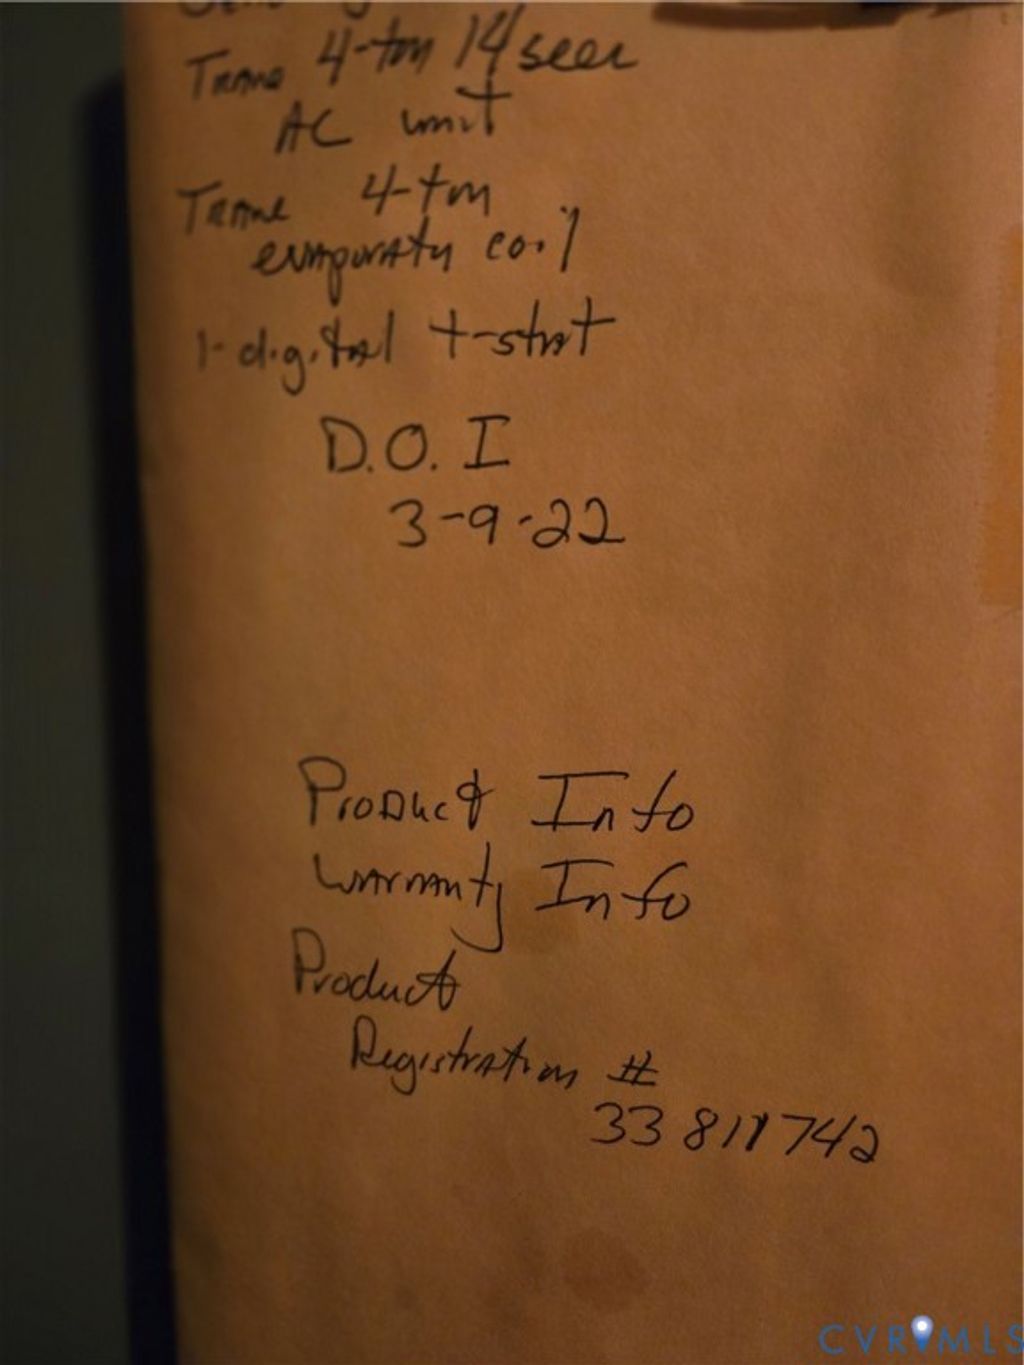 Trane 4-ton 14 seer
AC unit
Trane 4-ton
evaporator coil
1-digital t-stat
D.O.I
3-9-22
Product Info
Warranty Info
Product
Registration #
CVRMLS